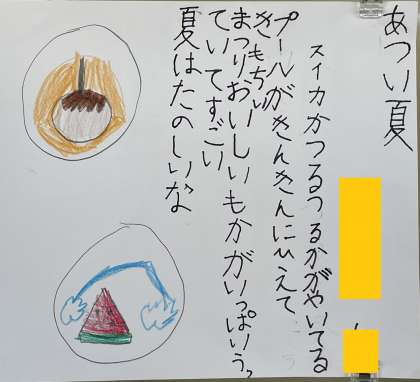 あつい夏
スイカがつるつるかがやいてる
プールがきんきんにひえて
きもちい
まつりおいしいものがいっぱいう
ていてすごい
夏はたのしいな